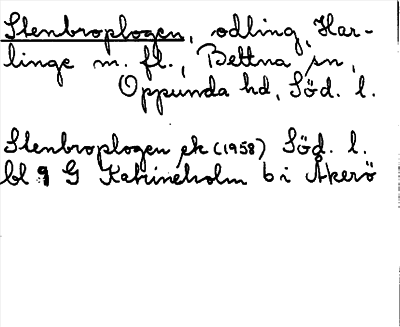 Stenbroplogen, odling, Har-
linge m. fl., Bettna sn,
Oppunda hd, Söd. l.
Stenbroplogen ek (1958) Söd. l.
bl 9 G Katrineholm b i Åkerö